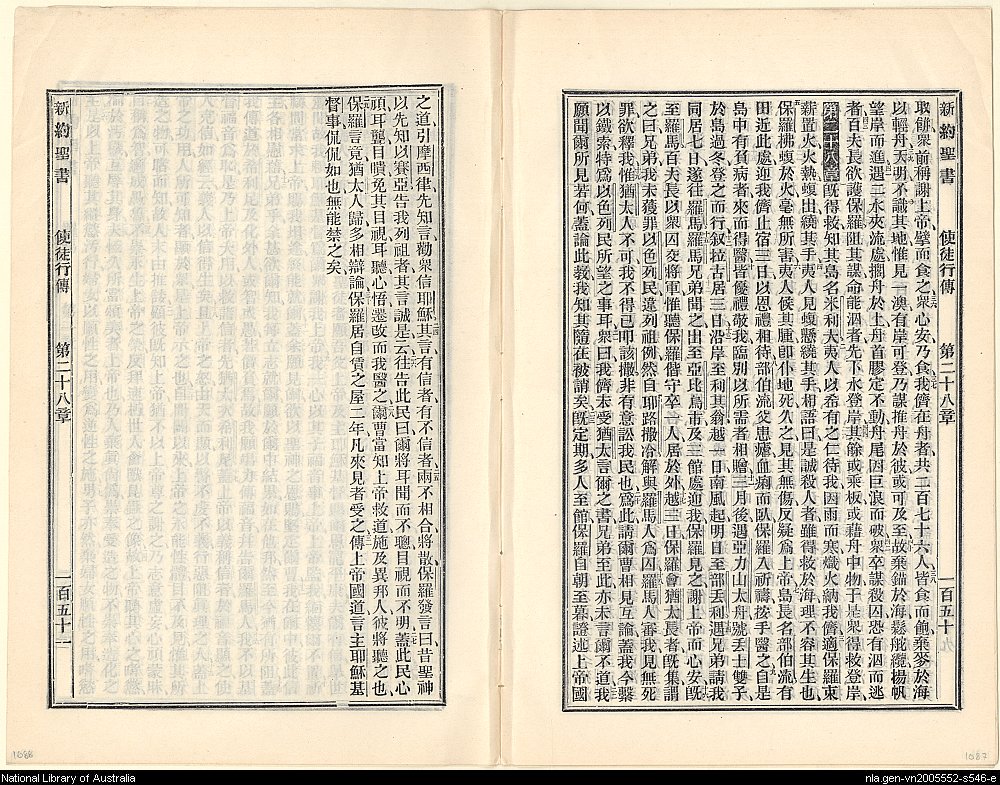 新約聖書　使徒行傳　第二十八章　一百五十
取餅衆前稱謝上帝擘而食之衆心安乃食我儕在舟者共二百七十六人皆食而飽棄麥於海
以輕舟天明不識其地惟見一澳有岸可登乃謀推舟於彼或可及至故棄錨於海鬆舵纜揚帆
望岸而進遇二水夾流處擱舟於上舟首膠定不動舟尾因巨浪而破衆卒謀殺囚恐有泅而逃
者百夫長欲護保羅阻其謀命能泅者先下水登岸其餘或乘板或藉舟中物于是衆得救登岸
第二十八章旣得救知其島名米利大夷人以希有之仁待我因雨而寒熾火納我儕適保羅束
薪置火火熱蝮出繞其手夷人見蝮懸繞其手相語曰是誠殺人者雖得救於海理不容其生也
保羅拂蝮於火毫無所害夷人候其腫卽仆地死久之見其無傷反疑爲上帝島長名部伯流有
田近此處迎我儕止宿三日以恩禮相待部伯流父患瘧血痢而臥保羅入祈禱按手醫之自是
島中有負病者來而得醫皆優禮敬我臨別以所需者相贈三月後遇亞力山太舟號丟士雙子
於島過冬登之而行叙拉古居三日沿岸至利其翁越一日南風起明日至部丟利遇兄弟請我
同居七日遂往羅馬羅馬兄弟聞之出至亞比烏市及三館處迎我保羅見之謝上帝而心安旣
至羅馬百夫長以衆囚交將軍惟聽保羅偕守卒一人居於外越三日保羅會猶太長者旣集謂
之曰兄弟我未獲罪以色列民違列祖例然自耶路撒冷解與羅馬人爲囚羅馬人審我見無死
罪欲釋我惟猶太人不可我不得已叩該撒非有意訟我民也爲此請爾曹相見互論蓋我今繫
以鐵索特爲以色列民所望之事耳衆曰我儕未受猶太言爾之書兄弟至此亦未言爾不道我
願聞爾所見若何蓋論此敎我知其隨在被謗矣旣定期多人至館保羅自朝至暮證述上帝國
之道引摩西律先知言勸衆信耶穌其言有信者有不信者兩不相合將散保羅發言曰昔聖神
以先知以賽亞告我列祖者其言誠是云往告此民曰爾將耳聞而不聰目視而不明蓋此民心
頑耳聾目瞶免其目視耳聽心悟遷改而我醫之爾曹當知上帝救道施及異邦人彼將聽之也
保羅言竟猶太人歸多相辯論保羅居自賃之屋二年凡來見者受之傳上帝國道言主耶穌基
督事侃侃如也無能禁之矣
新約聖書　使徒行傳　第二十八章　一百五十二
1088
1087
National Library of Australia
nla.gen-vn2005552-s546-e